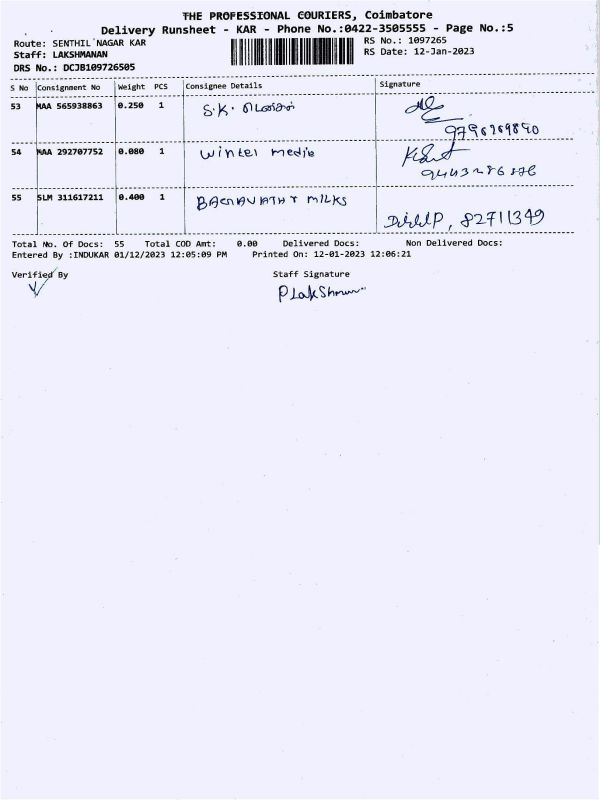 THE PROFESSIONAL COURIERS, Coimbatore
Delivery Runsheet - KAR - Phone No.:0422-3505555 - Page No.:5
Route: SENTHIL NAGAR KAR RS No.: 1097265
Staff: LAKSHMANAN RS Date: 12-Jan-2023
DRS No.: DCJB109726505
S No Consignment No Weight PCS Consignee Details Signature
53 MAA 565938863 0.250 1 S.K.
54 MAA 292707752 0.080 1 Winter media
55 SLM 311617211 0.400 1 BAGAVATHY MILKS
82711349
Total No. Of Docs: 55 Total COD Amt: 0.00 Delivered Docs: Non Delivered Docs:
Entered By :INDUKAR 01/12/2023 12:05:09 PM Printed On: 12-01-2023 12:06:21
Verified By Staff Signature